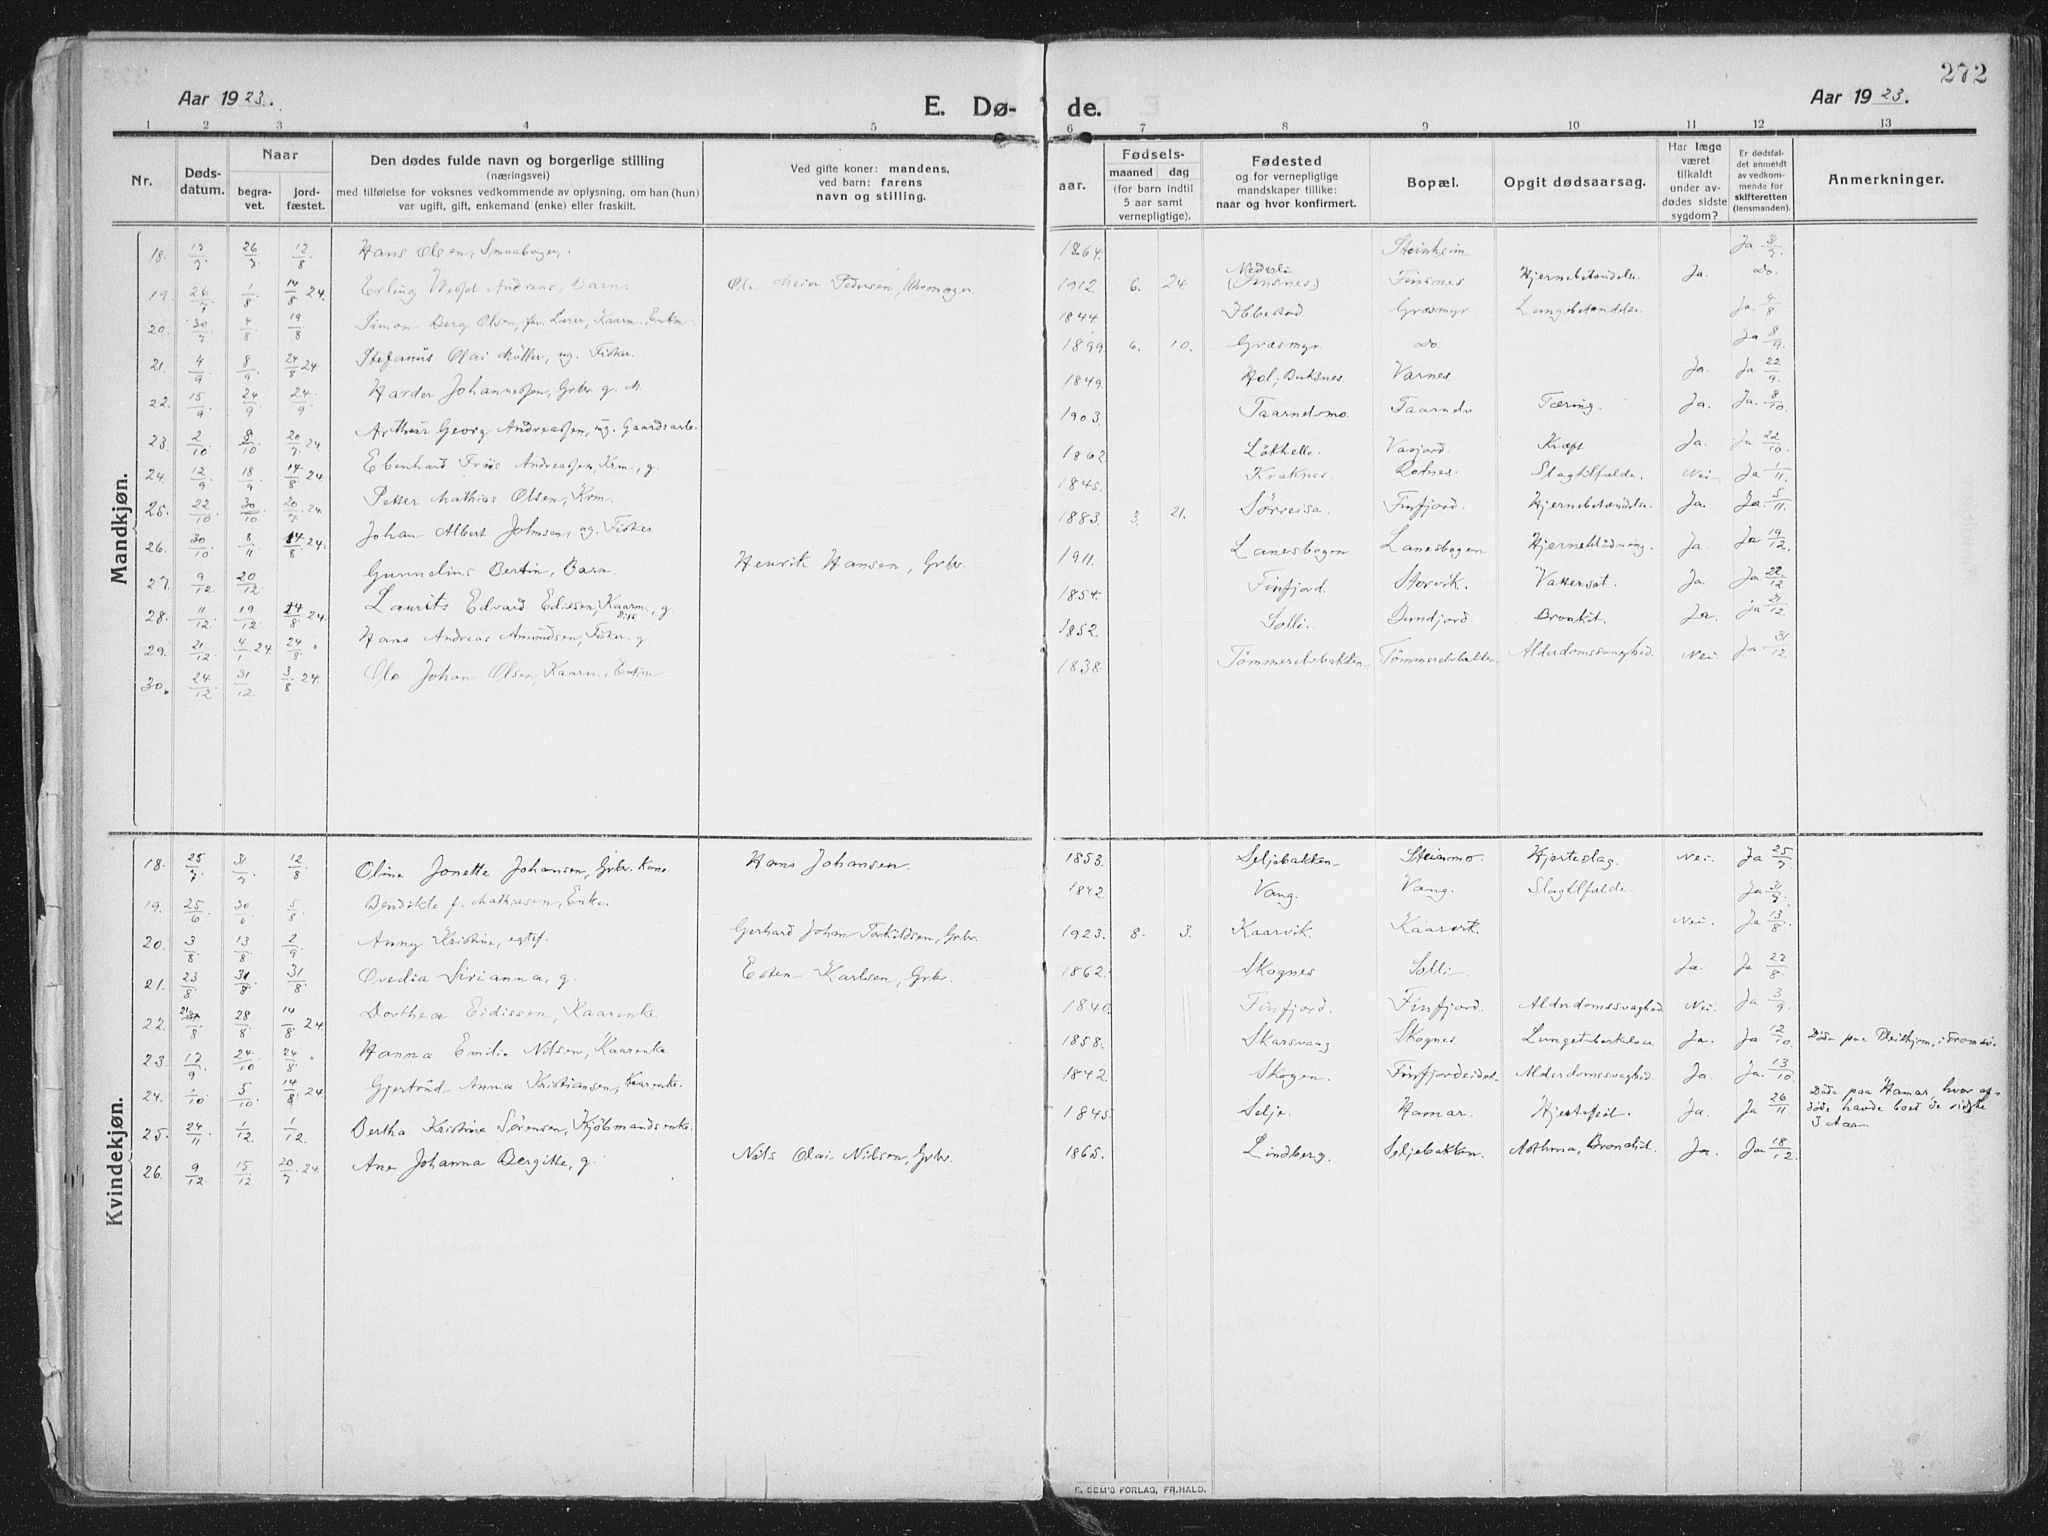 272
Aar 1923.
E. Dø- de.
Aar 1923.
1 2 3 4 5 6 7 8 9 10 11 12 13
Nr.
Døds-
datum.
Naar
begra-
vet.
jord-
fæstet.
Den dødes fulde navn og borgerlige stilling
(næringsvei)
med tilføielse for voksnes vedkommende av oplysning, om han (hun)
var ugift, gift, enkemand (enke) eller fraskilt.
Ved gifte koner: mandens,
ved barn: farens
navn og stilling.
Fødsels-
aar. maaned dag
(for barn indtil
5 aar samt
vernepligtige).
Fødested
og for vernepligtige
mandskaper tillike:
naar og hvor konfirmert.
Bopæl.
Opgit dødsaarsag.
Har læge
været
tilkaldt
under av-
dødes sidste
sygdom?
Er dødsfal-
det anmeldt
av vedkom-
mende for
skifteretten
(lensmanden).
Anmerkninger.
Mandkjøn.
18. 17/7 26/7 12/8 Hans Olsen, 1864. Steinheim. Ja
19. 26/7 1/8 14/8 24. Erling Andreas, Barn Ole Meier Pedersen, 1912 6. 24. (Finsnes) Finsnes Hjernebetændelse Ja. do.
20. 30/7 4/8 19/8 Simon Berg Olsen, fhv. Lærer, Kaarm., Enkm 1844 Ibbestad Græsmyr Lungebetændelse Ja. 4/8
21. 4/9 8/9 24/8 24. Stefanus Olai Möller, ug. Fisker. 1899 6. 10. Græsmyr. do. Ja 8/9
22. 15/9 24/9 24/9. Harder Johannessen, Grbr. g. M. 1849. Hol; Buksnes Varnes Ja. Ja. 22/9
23 2/10 9/10 20/7 24. Arthur Georg Andreassen, ug. Gaardsarb. 1903. Taarnelvmo. Taarnelv Tæring. Ja. Ja. 8/10
24. 12/9 18/9 14/8 24 Ebenhard Friis Andreassen, Krm., g. 1862 Lökhelle. Vasjord. Kræft Ja. Ja 22/10.
25. 22/10 30/10 20/7. 24. Petter Mathias Olsen, Krm. 1845. Kraknes Rotnes. Slagtilfælde. Nei Ja 1/11.
26. 30/10 8/11 14/8. 24. Johan Albert Johnsen, ug. Fisker 1883. 3. 21. Sörreisa. Finfjord. Hjernebetændelse Ja. Ja. 5/11.
27. 9/12 20/12 Gunnelius Bertin, Barn Henrik Hansen, Grbr. 1911. Lanesbogen Lanesbogen Hjerneblødning. Ja. Ja 19/12.
28. 11/12. 19/12 14/8 24. Laurits Edvard Edissen, Kaarm., g. 1854. Finfjord. Storvik. Vattersot. Ja. Ja 22/12
diss
29. 21/12. 4/1. 24. 24/8 " Hans Andreas Amundsen, Fisker. g 1852. Solli. Bundjord. Bronkit. Ja. ja 21/12.
30. 24/12 31/12. 3/8 24. Ole Johan Olsen, Kaarm., Enkm 1838. Tömmerelvbakken Tömmerelvbakken Alderdomssvaghed. Nei. Ja 31/12.
Kvindekjøn.
18. 25/7 31/7. 12/8. Oline Jonette Johansen, Grbr. Kone. Hans Johansen. 1853. Seljebakken Steinmo. Hjerteslag. Nei. Ja 25/7
19. 25/6 30/6. 5/8 Bendikte f. Mathiasen, Enke. 1842 Vang. Vang. Slagtilfælde. Ja
20. 3/8 13/8. 2/9 Anny Kristine, egtef. Gerhard Johan Torkildsen, Grbr. 1923. 8. 3. Kaarvik. Kaarvik. Nei. Ja 13/8
21. 23/8. 31/8. 31/8. Ovedia Sirianna, g. Esten Karlsen, Grbr. 1862. Skognes Solli. Ja. Ja 27/8.
22. 21/8 28/8. 14/8 24. Dorthea Eidissen, Kaarenke. 1840. Finfjord. Finfjord. Alderdomssvaghed. Nei. Ja 3/9.
23. 17/9. 24/10 24/8. " Hanna Emilie Nilsen, Kaarenke 1858. Skarsvaag Skognes Lungetuberkulose Ja. Ja 12/10 Död paa Pleiehjem, i Tromsö.
24. 1/10 5/10. 14/8 24 Gjertrud Anna Kristiansen, Kaarenke. 1842. Skogen. Finfjordeidet. Alderdomssvaghed. Ja. Ja. 13/10.
25. 24/11 1/12. 1/12. Bertha Kristine Sörensen, Kjöbmandsenke. 1845 Selje. Hamar. Hjertefeil. Ja. Ja 26/11. Död paa Hamar, hvor af-
döde havde boet de sidste
3 Aar.
26. 9/12 15/12 20/7. 24. Ane Johanna Bergitte, g. Nils Olai Nilsen, Grbr. 1865. Lindberg. Seljebakken. Asthma, Bronchit. Ja. Ja 18/12.
E. SEM'S FORLAG, FR.HALD.